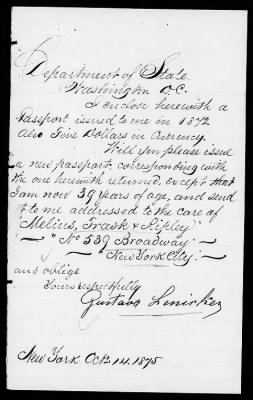 Department of State.
Washington D.C.
I enclose herewith a
Passport issued to me in 1872
Also Five Dollars in Currency.
Will you please issue
a new passport, corresponding with
the one herewith returned, except that
I am now 39 years of age, and send
it to me addressed to the care of
"Melius, Trask & Ripley"
"No 539 Broadway"
New York City.
and oblige
Yours respectfully
Gustave
New York Oct. 14. 1875